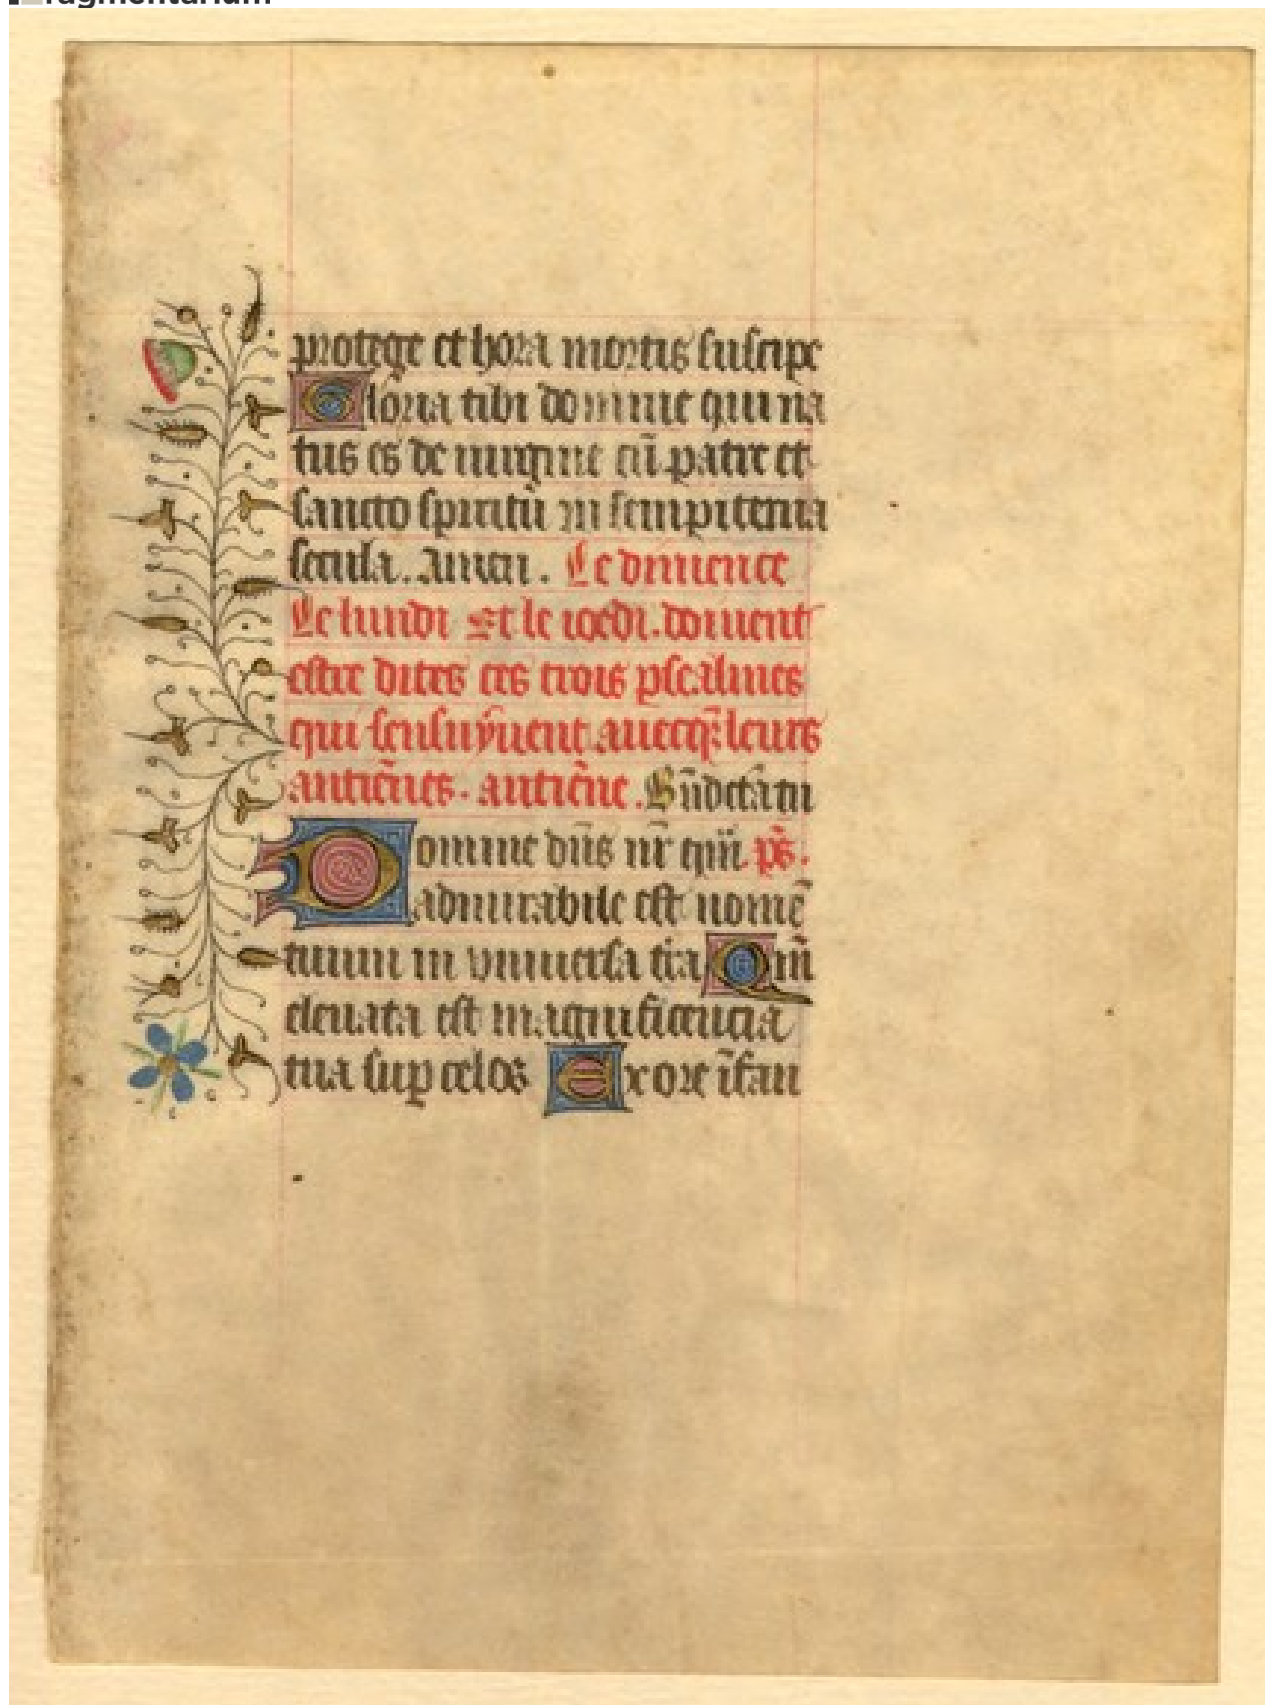 fragmentarium
protege et hora mortis suscipe
Gloria tibi domine qui na
tus es de uirgine cū patre et
sancto spiritu in sempiterna
secula. Amen. Le dimence
Le lundi Et le ioedi. doiuent
estre dites ces trois pscalmes
qui sensuyuent auecq̄ leurs
antiēnes. antiēne. Bn̄dcā tu
Domine dn̄s nr̄ qm̄. ps̄.
admirabile est nomē
tuum in vniuersa tra Qm̄
eleuata est magnificencia
tua sup celos Ex ore īfan